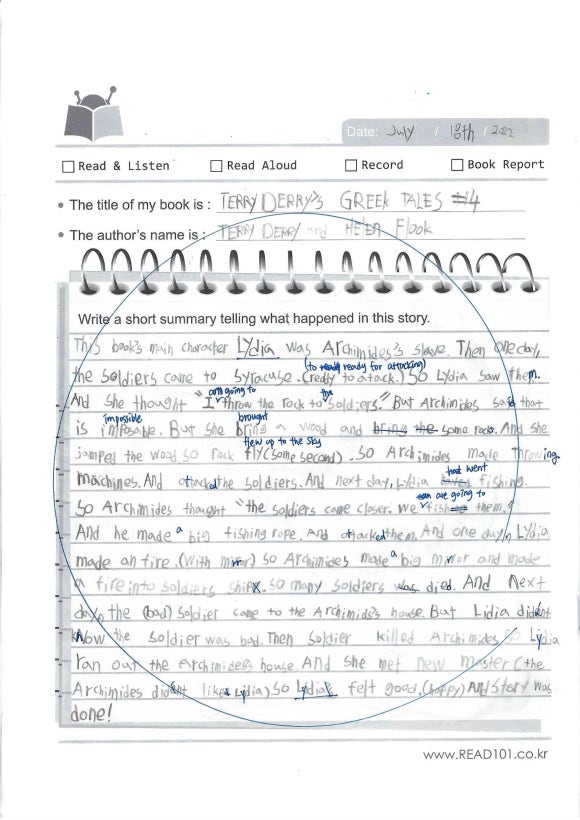 Date: July / 18th / 2012
Read & Listen Read Aloud Record Book Report
• The title of my book is : TERRY DERRY's GREEK TALES #4
• The author's name is : TERRY DERRY and HELEA Flook
Write a short summary telling what happened in this story.
This book's main character Lydia was Archimides's slave. Then one day,
(to ready for attacking)
the soldiers came to syracuse. (redy to atack.) So Lydia saw them.
am going to the
And she thought "I throw the rock to soldiers." But Archimides said that
imposible brought
is imposable. But she bring a wood and bring the some rocks. And she
flew up to the sky
jamped the wood so rock fly (some second). So Archimides made throwing
machines. And attacked the soldiers. And next day, Lydia went fishing.
are going to
So Archimides thought "the soldiers came closer. We fish them."
And he made a big fishing rope. And attacked them. And one day Lydia
made an fire. (With mirror) So Archimides made a big mirror and made
a fire into soldiers ship. So many soldiers was died. And Next
day the (bad) soldier came to the Archimides's house. But Lidia didn't
know the soldier was bad. Then soldier killed Archimides so Lydia
ran out the archimides's house. And she met new master (the
Archimides didn't like Lydia) So Lydia felt good. (happy) And story was
done!
www.READ101.co.kr